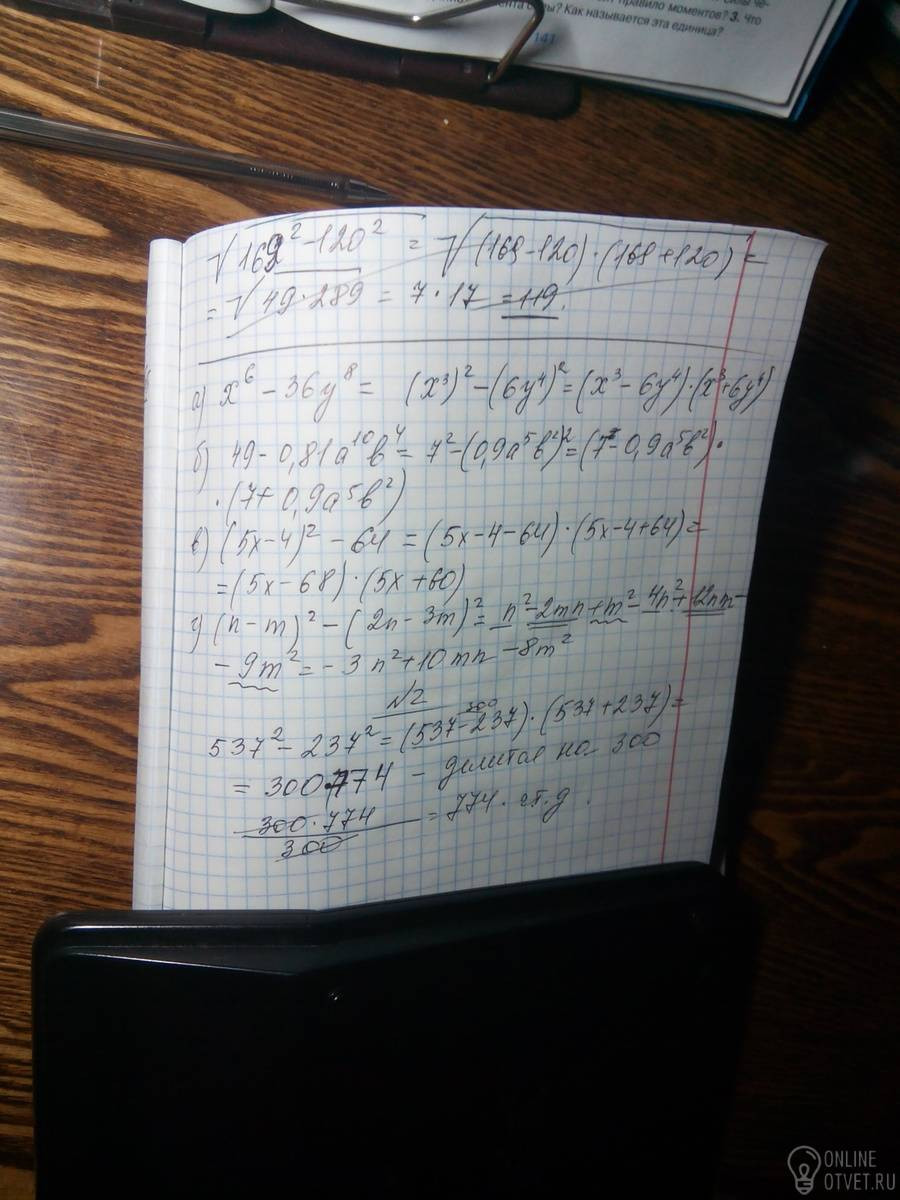 силы че-
правило моментов? 3. Что
момента силы? Как называется эта единица?
141
√169² - 120² = √(169-120)·(169+120) =
= √49·289 = 7·17 = 119.
а) x⁶ - 36y⁸ = (x³)² - (6y⁴)² = (x³ - 6y⁴)·(x³+6y⁴)
б) 49 - 0,81a¹⁰b⁴ = 7² - (0,9a⁵b²)² = (7 - 0,9a⁵b²)·
·(7+0,9a⁵b²)
в) (5x-4)² - 64 = (5x-4-64)·(5x-4+64) =
= (5x-68)·(5x+60)
г) (n-m)² - (2n-3m)² = n² - 2mn + m² - 4n² + 12nm -
- 9m² = - 3n² + 10mn - 8m²
№2
300
537² - 237² = (537-237)·(537+237) =
= 300·774 - делится на 300
300·774
300
= 774. ст.д.
ONLINE
OTVET.RU